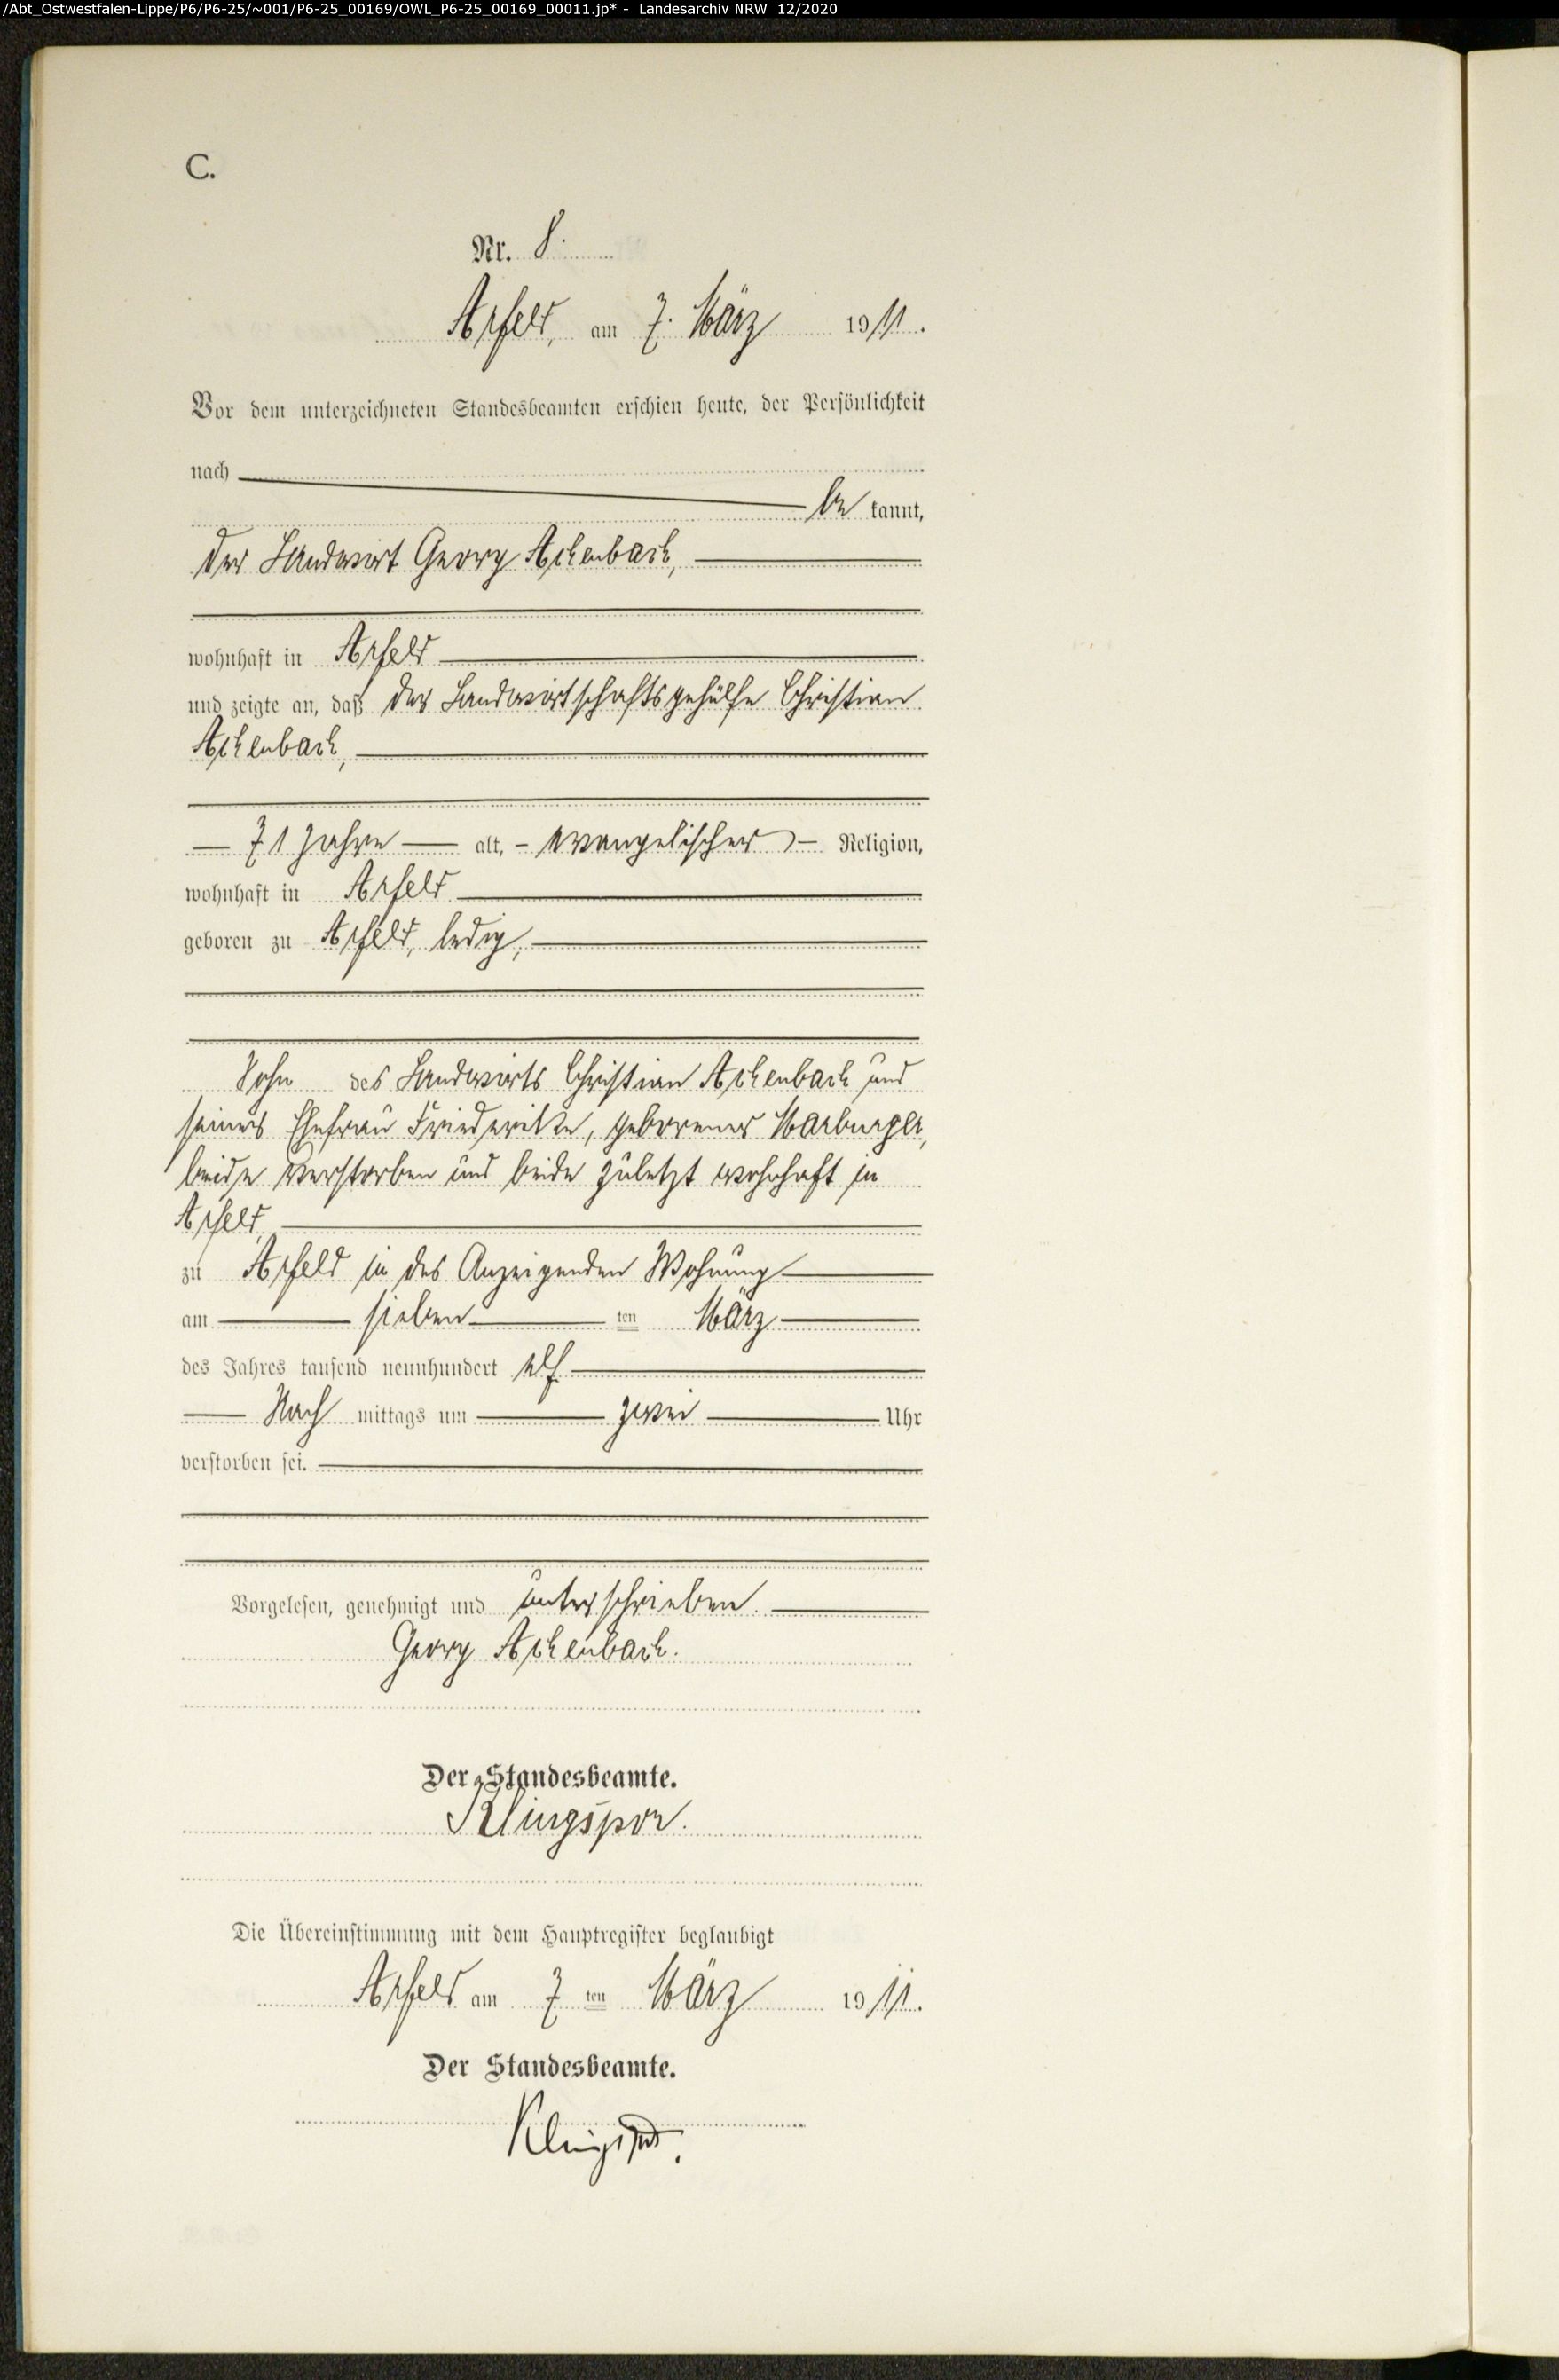 /Abt_Ostwestfalen-Lippe/P6/P6-25/~001/P6-25_00169/OWL_P6-25_00169_00011.jp* - Landesarchiv NRW 12/2020
C.
Nr. 8.
Arfeld, am 7. März 1911.
Vor dem unterzeichneten Standesbeamten erschien heute, der Persönlichkeit
nach
be kannt,
der Landwirt Georg Achenbach,
wohnhaft in Arfeld
und zeigte an, daß der Landwirtschaftsgehülfe Christian
Achenbach,
71 Jahre alt, evangelischer Religion,
wohnhaft in Arfeld
geboren zu Arfeld, ledig,
Sohn des Landwirts Christian Achenbach und
seiner Ehefrau Friederike, geborener Marburger,
beide verstorben und beide zuletzt wohnhaft in
Arfeld,
zu Arfeld in des Anzeigenden Wohnung
am sieben ten März
des Jahres tausend neunhundert elf
Nach mittags um zwei Uhr
verstorben sei.
Vorgelesen, genehmigt und unterschrieben.
Georg Achenbach.
Der Standesbeamte.
Klingspor.
Die Übereinstimmung mit dem Hauptregister beglaubigt
Arfeld am 7 ten März 1911.
Der Standesbeamte.
Klingspor.